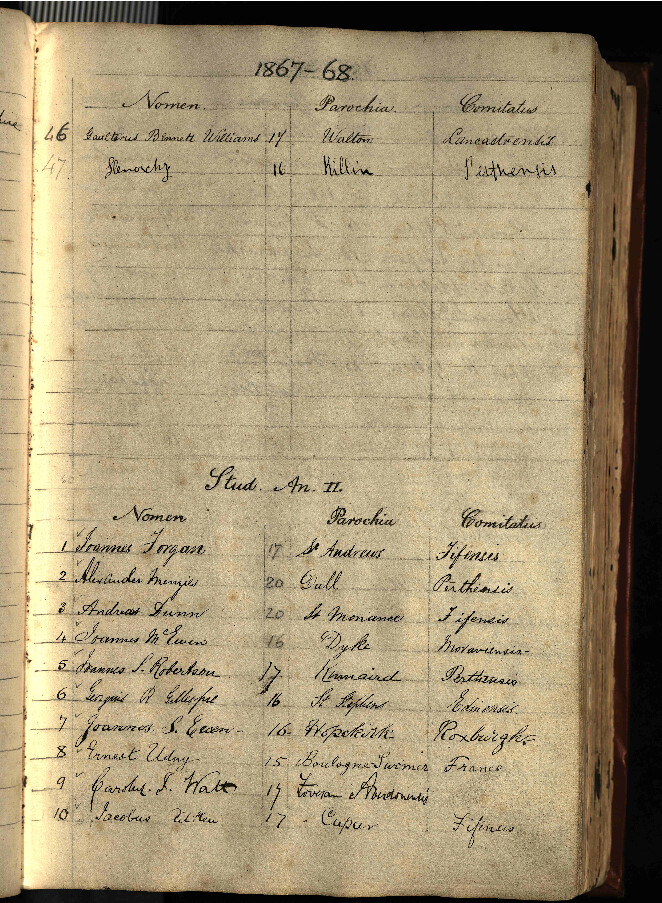 1867-68.
Nomen. Parochia. Comitatus
46 Gualterus Binnett Williams 17 Walton Lancastrensis
47. Glenorchy 16 Killin Perthensis
Stud. An. II.
Nomen Parochia Comitatus
1 Joannes Forgan 17 St Andrews Fifensis
2 Alexander Menzies 20 Dull Perthensis
3 Andreas Dunn 20 St Monance Fifensis
4 Joannes McEwen 16 Dyke Moraviensis
5 Joannes S. Robertson 17 Kennaird Perthensis
6 Georgius R Gillespie 16 St Stephens Edinensis
7 Joannes S. Ewen 16 Hopekirk Roxburgh
8 Ernest Udny 15 Boulogne Surmer France
9 J. Watt 17 Foveran Aberdonensis
10 Jacobus Aitken 17 Cuper Fifensis